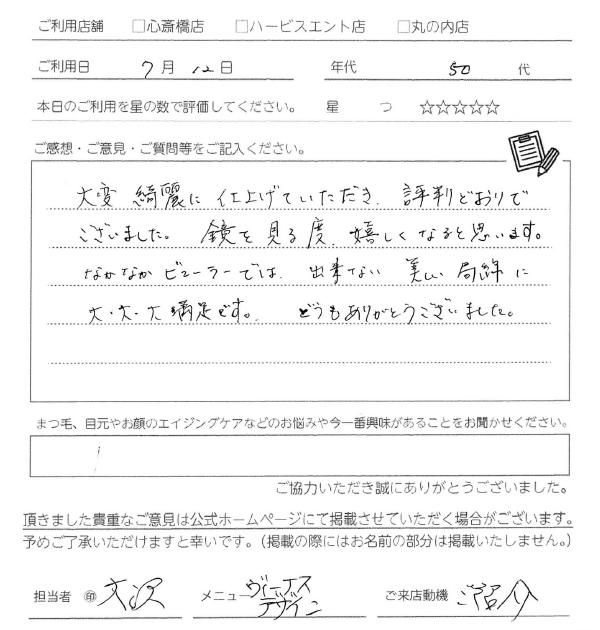 ご利用店舗 □心斎橋店 □ハービスエント店 □丸の内店
ご利用日 7月12日 年代 50代
本日のご利用を星の数で評価してください。 星 つ ☆☆☆☆☆
ご感想・ご意見・ご質問等をご記入ください。
大変 綺麗に 仕上げていただき、評判どおりで
ございました。 鏡を見る度、嬉しくなると思います。
なかなか ビューラーでは、出来ない 美しい 曲線に
大・大・大満足です。 どうもありがとうございました。
まつ毛、目元やお顔のエイジングケアなどのお悩みや今一番興味があることをお聞かせください。
ご協力いただき誠にありがとうございました。
頂きました貴重なご意見は公式ホームページにて掲載させていただく場合がございます。
予めご了承いただけますと幸いです。（掲載の際にはお名前の部分は掲載いたしません。）
担当者 ㊞ 大沢 メニュー ヴィーナスデザイン ご来店動機 ご紹介